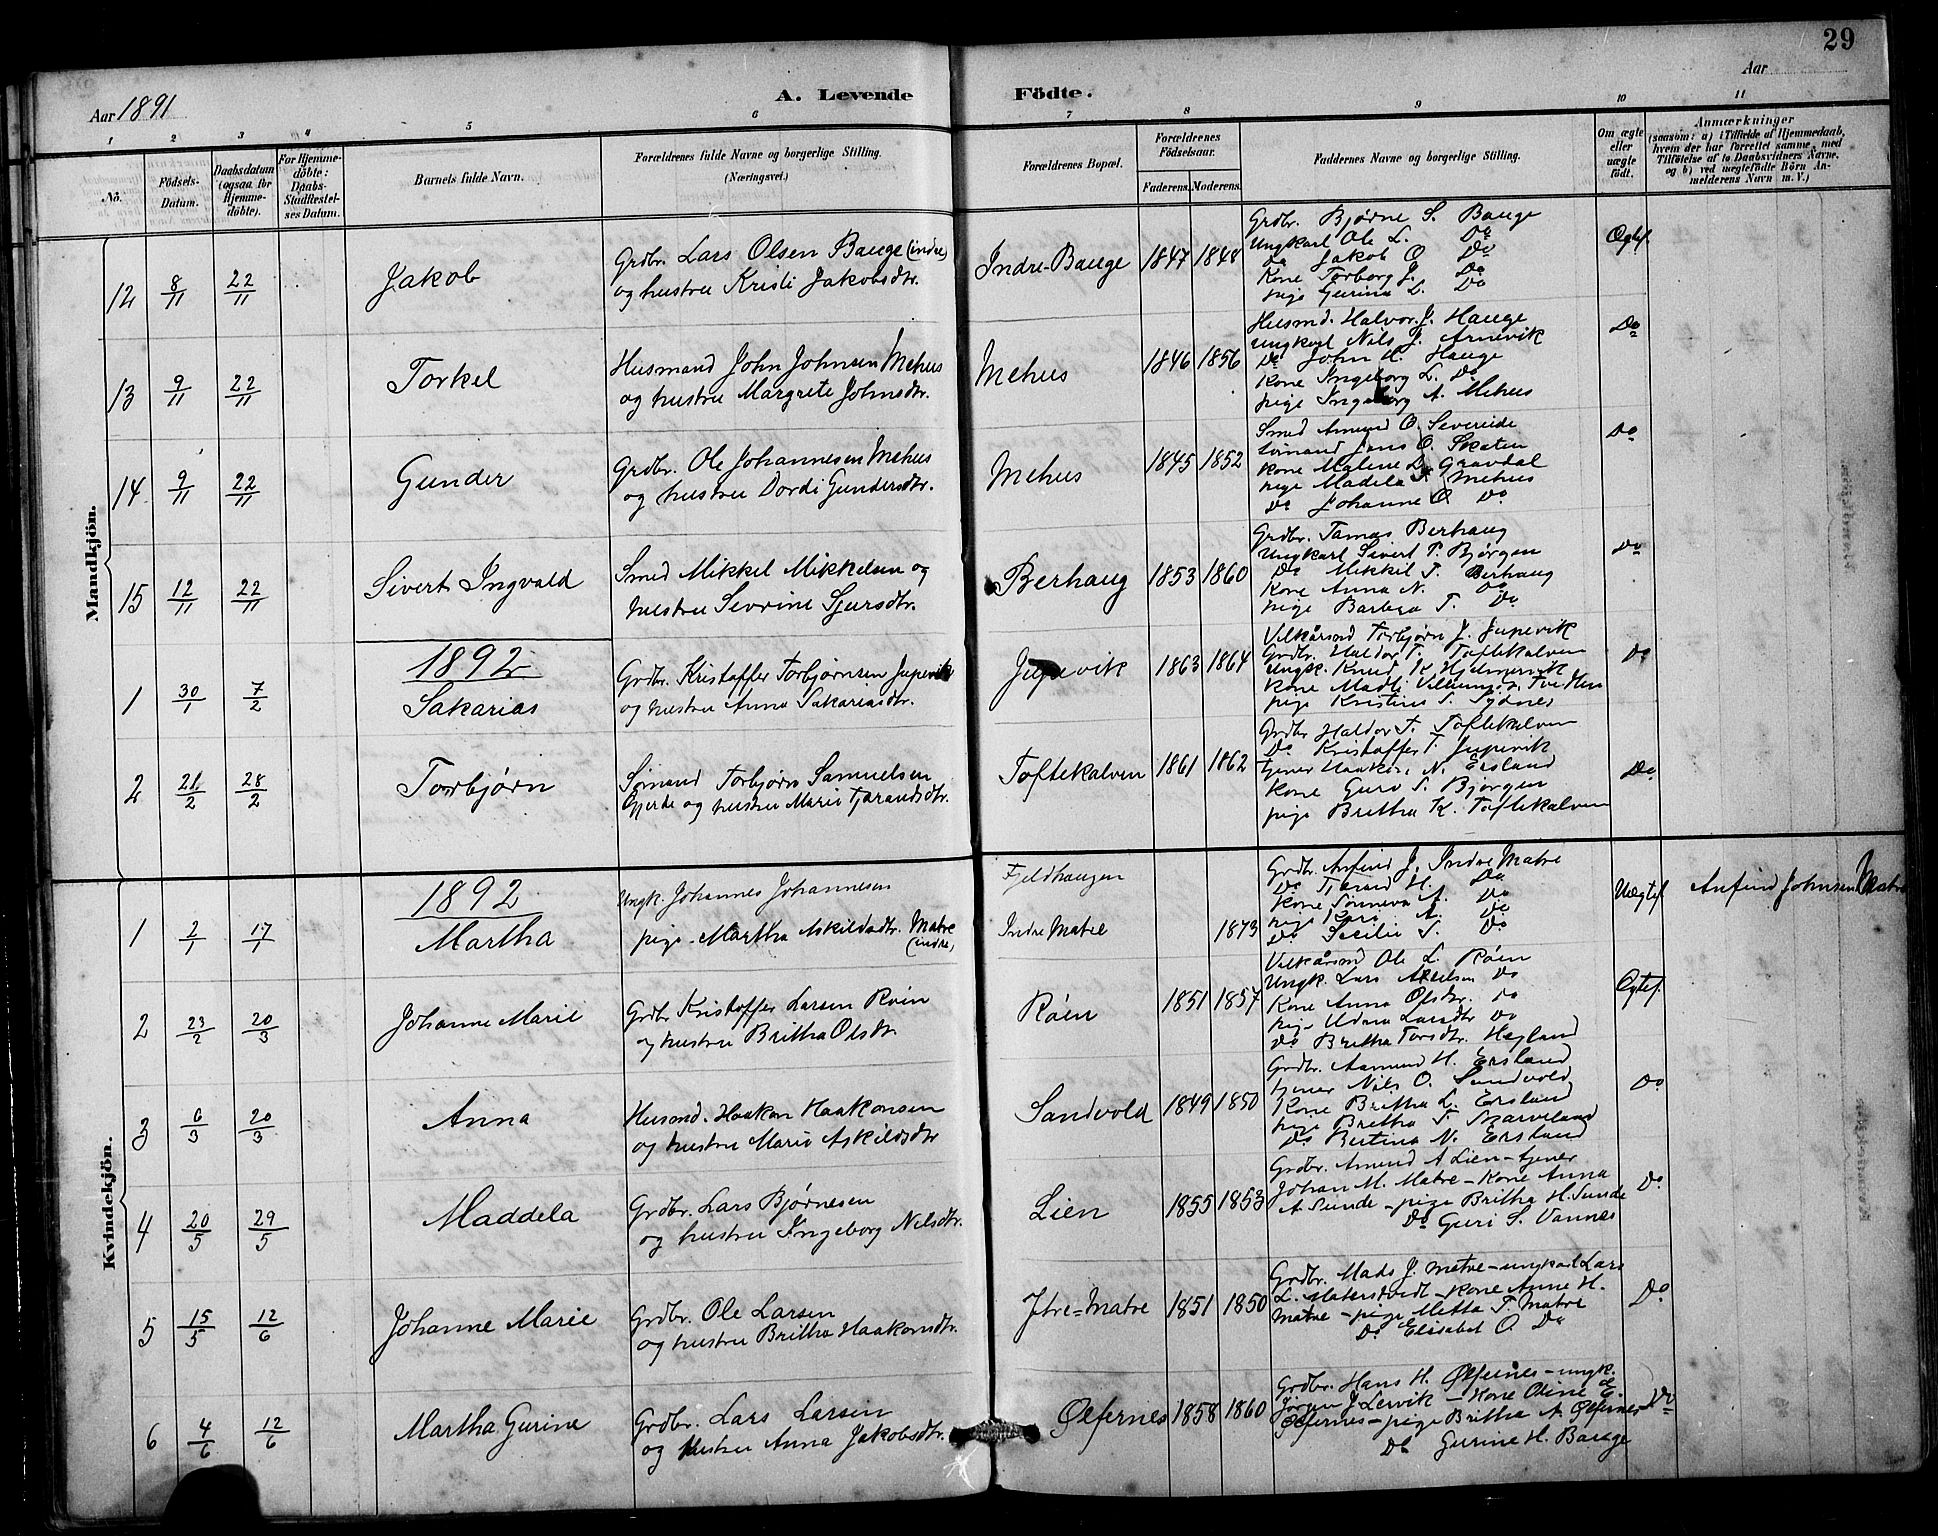 29
Aar 1891
A. Levende Födte.
Aar
1 2 3 4 5 6 7 8 9 10 11
No.
Födsels-Datum.
Daabsdatum (ogsaa for Hjemme-döbte).
For Hjemme-döbte: Daabs-Stadfæstel-ses Datum.
Barnets fulde Navn.
Forældrenes fulde Navne og borgerlige Stilling.
(Næringsvei.)
Forældrenes Bopæl.
Forældrenes Födselsaar.
Faderens. Moderens.
Faddernes Navne og borgerlige Stilling.
Om ægte eller uægte født.
Anmærkninger
(saasom: a) i Tilfælde af Hjemmedaab, hvem der har forrettet samme, med Tilföielse af to Daabsvidners Navne, og b) ved uægtefödte Börn An-melderens Navn m. V.)
Mandkjön.
12 8/11 22/11 Jakob
Grdbr. Lars Olsen Bauge (indre)
og hustru Kristi Jakobsdtr.
Indre-Bauge 1847 1848
Grdbr. Bjørne S. Bauge
Ungkarl Ole L. Do
Do Jakob O. Do
Kone Torborg J. Do
pige Gurina L. Do
Ægtef.
13 9/11 22/11 Torkel
Husmand John Johnsen Mehus
og hustru Margrete Johnsdtr.
Mehus 1846 1856
Husmd. Halvor J. Hauge
Ungkarl Nils J. Arnevik
Do John H. Hauge
Kone Ingeborg L. Do
pige Ingeborg A. Mehus
Do
14 9/11 22/11 Gunder
Grdbr. Ole Johannesen Mehus
og hustru Dordi Gundersdtr.
Mehus 1845 1852
Smed Amund O. Severeide
Sømand Jens O. Skaten
Kone Malene L. Gravdal
pige Madela T. Mehus
Do Johanne O. Do
Do
15 12/11 22/11 Sivert Ingvald
Smed Mikkel Mikkelsen og
hustru Sevrine Sjursdtr.
Berhaug 1853 1860
Grdbr. Tomas Berhaug
Ungkarl Sivert T. Bjørgen
Do Mikkel T. Berhaug
Kone Anna N. Do
pige Barbra T. Do
Do
1892
1 30/1 7/2 Sakarias
Grdbr. Kristoffer Torbjørnsen Jupevik
og hustru Anna Sakariasdtr.
Jupevik 1863 1864
Vilkårsmd Torbjørn J. Jupevik
Grdbr. Haldor T. Toftekalven
Ungk. Knud K. Hjelmervik
Kone Madli
pige Kristine S. Sydnes
Do
2 21/2 28/2 Torbjørn
Sømand Torbjørn Samuelsen
Gjerde og hustru Mari Tjerandsdtr.
Toftekalven 1861 1862
Grdbr Haldor T. Toftekalven
Do Kristoffer T. Jupevik
tjener Haakon N. Ersland
Kone Guro S. Bjørgen
pige Britha K. Toftekalven
Do
Kvindekjön.
1892
1 2/1 17/1 Martha
Ungk. Johannes Johannesen
pige Martha Askildsdtr. Matre (indre)
Fjeldhaugen
Indre Matre 1873
Grdbr. Anfind J. Indre Matre
Do Tjerand H. Do
Kone Sønneva A. Do
pige Kari A. Do
Do Secilie S. Do
Uægtef.
Anfind Johnsen Matre
2 23/2 20/3 Johanne Marie
Grdbr Kristoffer Larsen Røen
og hustru Britha Olsdtr
Røen 1851 1857
Vilkårsmd Ole L. Røen
Ungk. Lars Do
Kone Anna Olsdtr. Do
pige Larsdtr Do
Do Britha Torsdtr. Høyland
Ægtef.
3 6/3 20/3 Anna
Husmd. Haakon Haakonsen
og hustru Mari Askildsdtr
Sandvold 1849 1850
Grdbr. Aamund H. Ersland
tjener Nils O. Sandvold
Kone Britha L. Ersland
pige Britha T. Skarveland
Do Bertina N. Ersland
Do
4 20/5 29/5 Maddela
Grdbr. Lars Bjørnesen
og hustru Ingeborg Nilsdtr.
Lien 1855 1853
Grdbr. Amund A Lien - tjener
Johan M. Matre - Kone Anna
A. Sunde - pige Britha H. Sunde
Do Guri S. Vannes
Do
5 15/5 12/6 Johanne Marie
Grdbr. Ole Larsen
og hustru Britha Haakonsdtr.
Ytre=Matre 1851 1850
Grdbr. Mads J. Matre - ungkarl Lars
L. Materstvedt - Kone Anne H.
Matre - pige Metta T. Matre
Do Elisabet O. Do
Do
6 4/6 12/6 Martha Gurine
Grdbr. Lars Larsen
og hustru Anna Jakobsdtr.
Ølfernes 1858 1860
Grdbr. Hans H. Ølfernes - ungk.
Jørgen J. Lervik - Kone Oline E.
Ølfernes - pige Britha A. Ølfernes
Do Gurine H. Bauge
Do